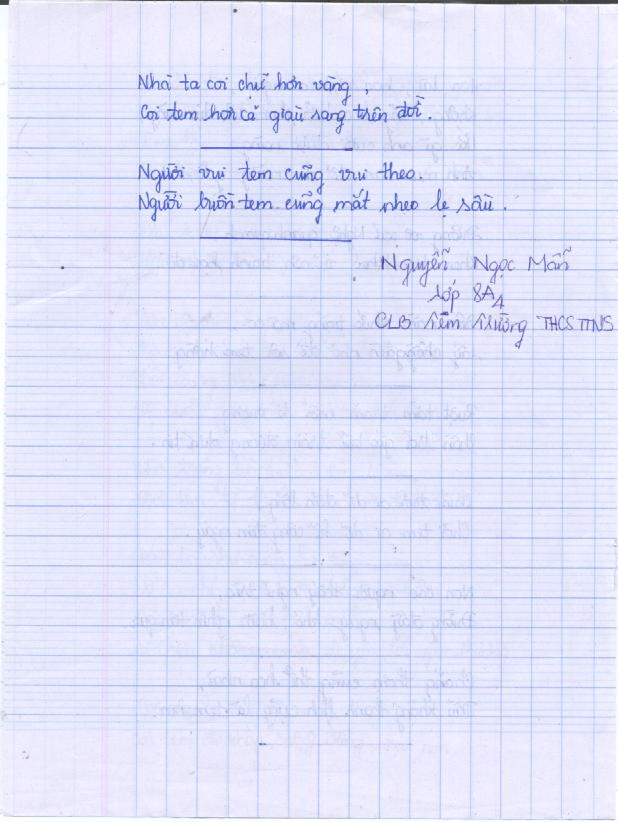 Nhà ta coi chữ hơn vàng,
Coi tem hơn cả giàu sang trên đời.
Người vui tem cũng vui theo.
Người buồn tem cũng mắt nheo lẹ sầu.
Nguyễn Ngọc Mẫn
Lớp 8A4
CLB Tem Trường THCS TTNS